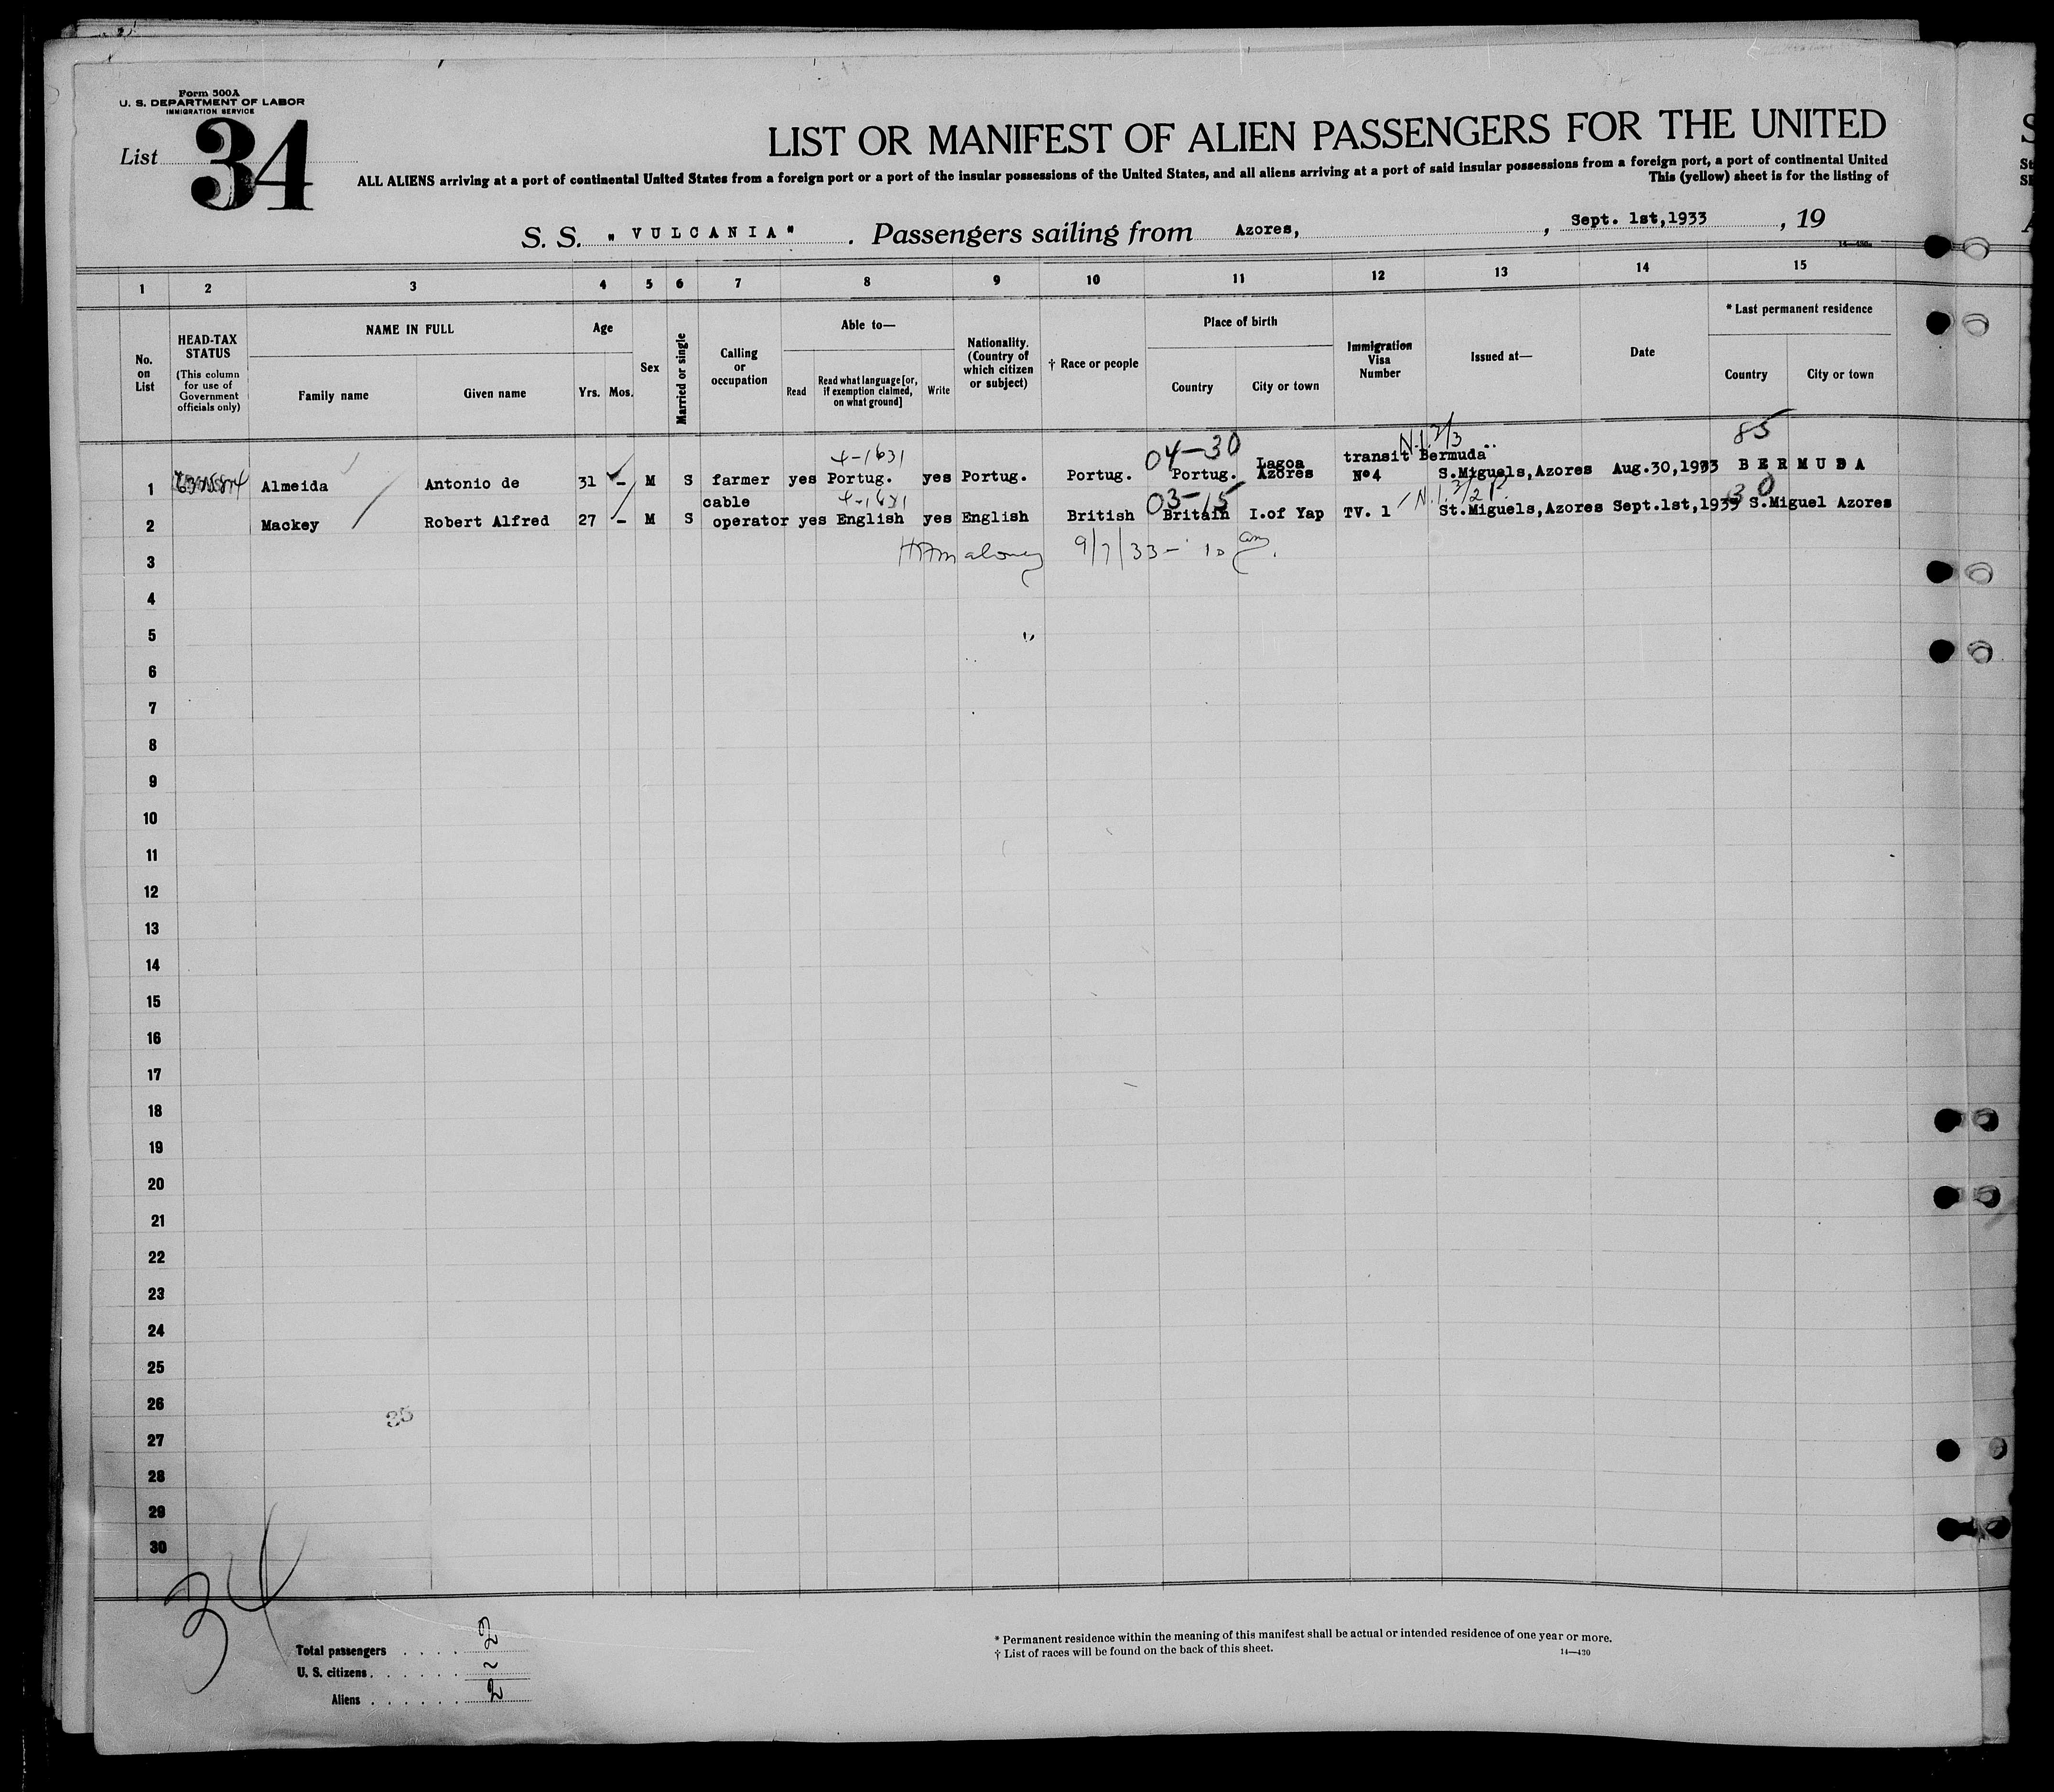 Form 500A
U. S. DEPARTMENT OF LABOR
IMMIGRATION SERVICE
List 34
LIST OR MANIFEST OF ALIEN PASSENGERS FOR THE UNITED
ALL ALIENS arriving at a port of continental United States from a foreign port or a port of the insular possessions of the United States, and all aliens arriving at a port of said insular possessions from a foreign port, a port of continental United
This (yellow) sheet is for the listing of
S. S. "VULCANIA". Passengers sailing from Azores, , Sept. 1st,1933 , 19
14—430
1 2 3 4 5 6 7 8 9 10 11 12 13 14 15
No. on List
HEAD-TAX STATUS
(This column for use of Government officials only)
NAME IN FULL
Family name
Given name
Age
Yrs. Mos.
Sex
Married or single
Calling or occupation
Able to—
Read
Read what language [or, if exemption claimed, on what ground]
Write
Nationality. (Country of which citizen or subject)
† Race or people
Place of birth
Country
City or town
Immigration Visa Number
Issued at—
Date
* Last permanent residence
Country
City or town
4-1631 04-30 N.I.3/3 85
transit Bermuda
1 Almeida Antonio de 31 - M S farmer yes Portug. yes Portug. Portug. Portug. Lagoa Azores Nº4 S.Miguels,Azores Aug.30,1933 BERMUDA
cable 4-1631 03-15 N.I.3/2 P. 30
2 Mackey Robert Alfred 27 - M S operator yes English yes English British Britain I.of Yap TV. 1 St.Miguels,Azores Sept.1st,1933 S.Miguel Azores
3 Maloney 9/7/33 - 10 am.
4
5
6
7
8
9
10
11
12
13
14
15
16
17
18
19
20
21
22
23
24
25
26
35
27
28
29
30
34
Total passengers . . . . 2
U. S. citizens . . . . . . ~
Aliens . . . . . . 2
* Permanent residence within the meaning of this manifest shall be actual or intended residence of one year or more.
† List of races will be found on the back of this sheet.
14—430